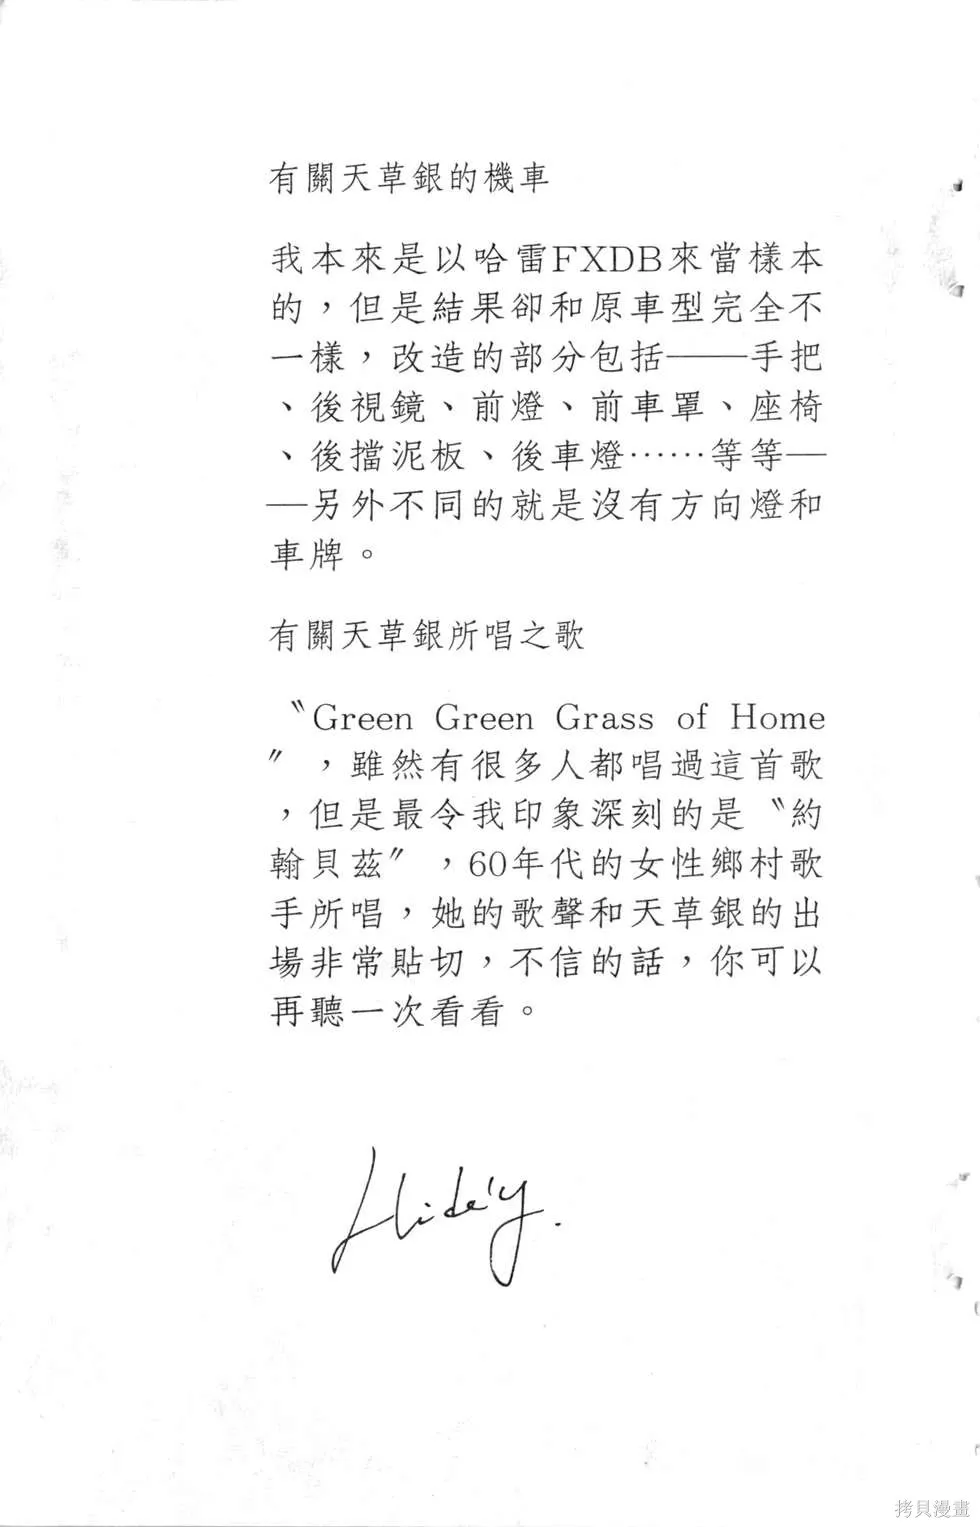 有關天草銀的機車
我本來是以哈雷FXDB來當樣本
的，但是結果卻和原車型完全不
一樣，改造的部分包括——手把
、後視鏡、前燈、前車罩、座椅
、後擋泥板、後車燈……等等—
—另外不同的就是沒有方向燈和
車牌。
有關天草銀所唱之歌
〝Green Green Grass of Home
〞，雖然有很多人都唱過這首歌
，但是最令我印象深刻的是〝約
翰貝茲〞，60年代的女性鄉村歌
手所唱，她的歌聲和天草銀的出
場非常貼切，不信的話，你可以
再聽一次看看。
Hide'y.
拷貝漫畫